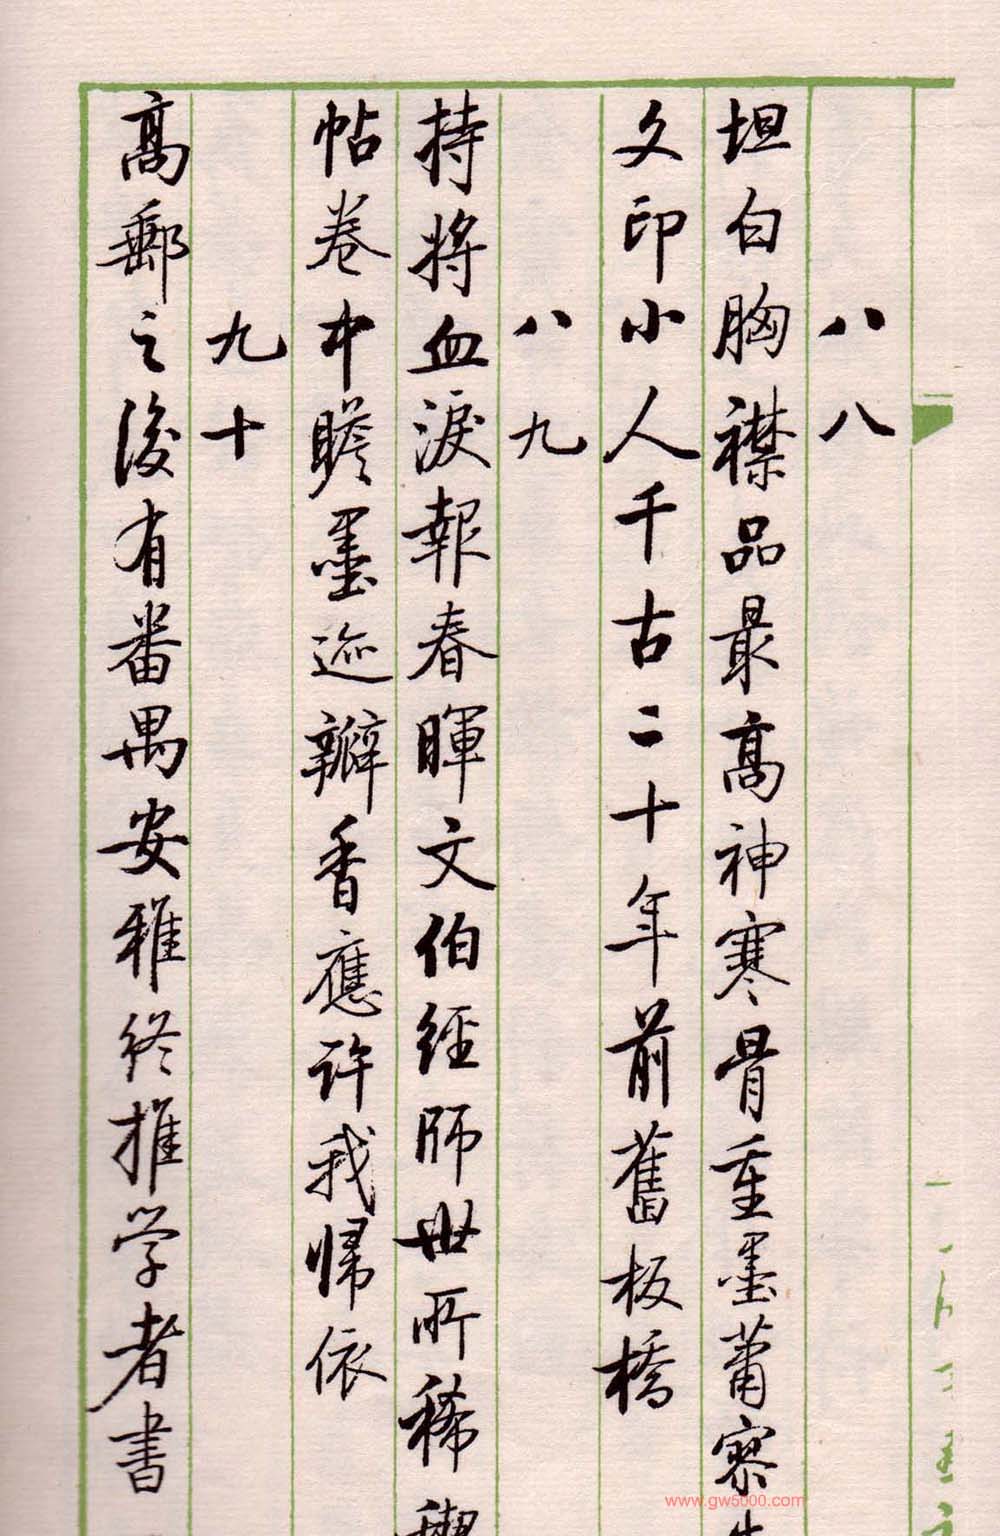 八八
坦白胸襟品最高神寒骨重墨萧寥
文印小人千古二十年前舊板橋
八九
持將血淚報春暉文伯經師世所稀
帖卷中瞻墨迹瓣香應許我歸依
九十
高郵之後有番禺安雅終推学者書
www.gw5000.com